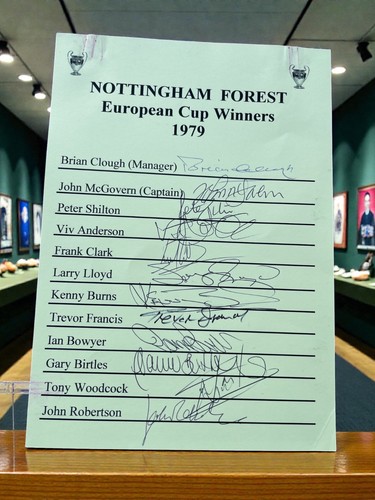 NOTTINGHAM FOREST
European Cup Winners
1979
Brian Clough (Manager) Brian Clough
John McGovern (Captain)
Peter Shilton
Viv Anderson
Frank Clark
Larry Lloyd
Kenny Burns
Trevor Francis Trevor Francis
Ian Bowyer
Gary Birtles
Tony Woodcock
John Robertson